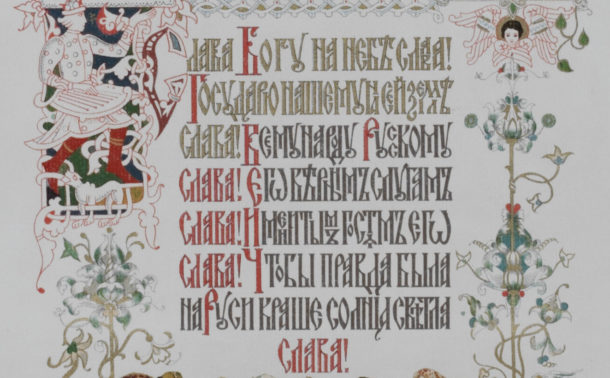 Слава Богу на небѣ слава!
Государю нашему на сей землѣ
слава! Всему народу Рускому
слава! Егѡ вѣрнымъ слугамъ
слава! Именитымъ гостямъ егѡ
слава! Чтобы правда была
на Руси краше солнца свѣтла
слава!